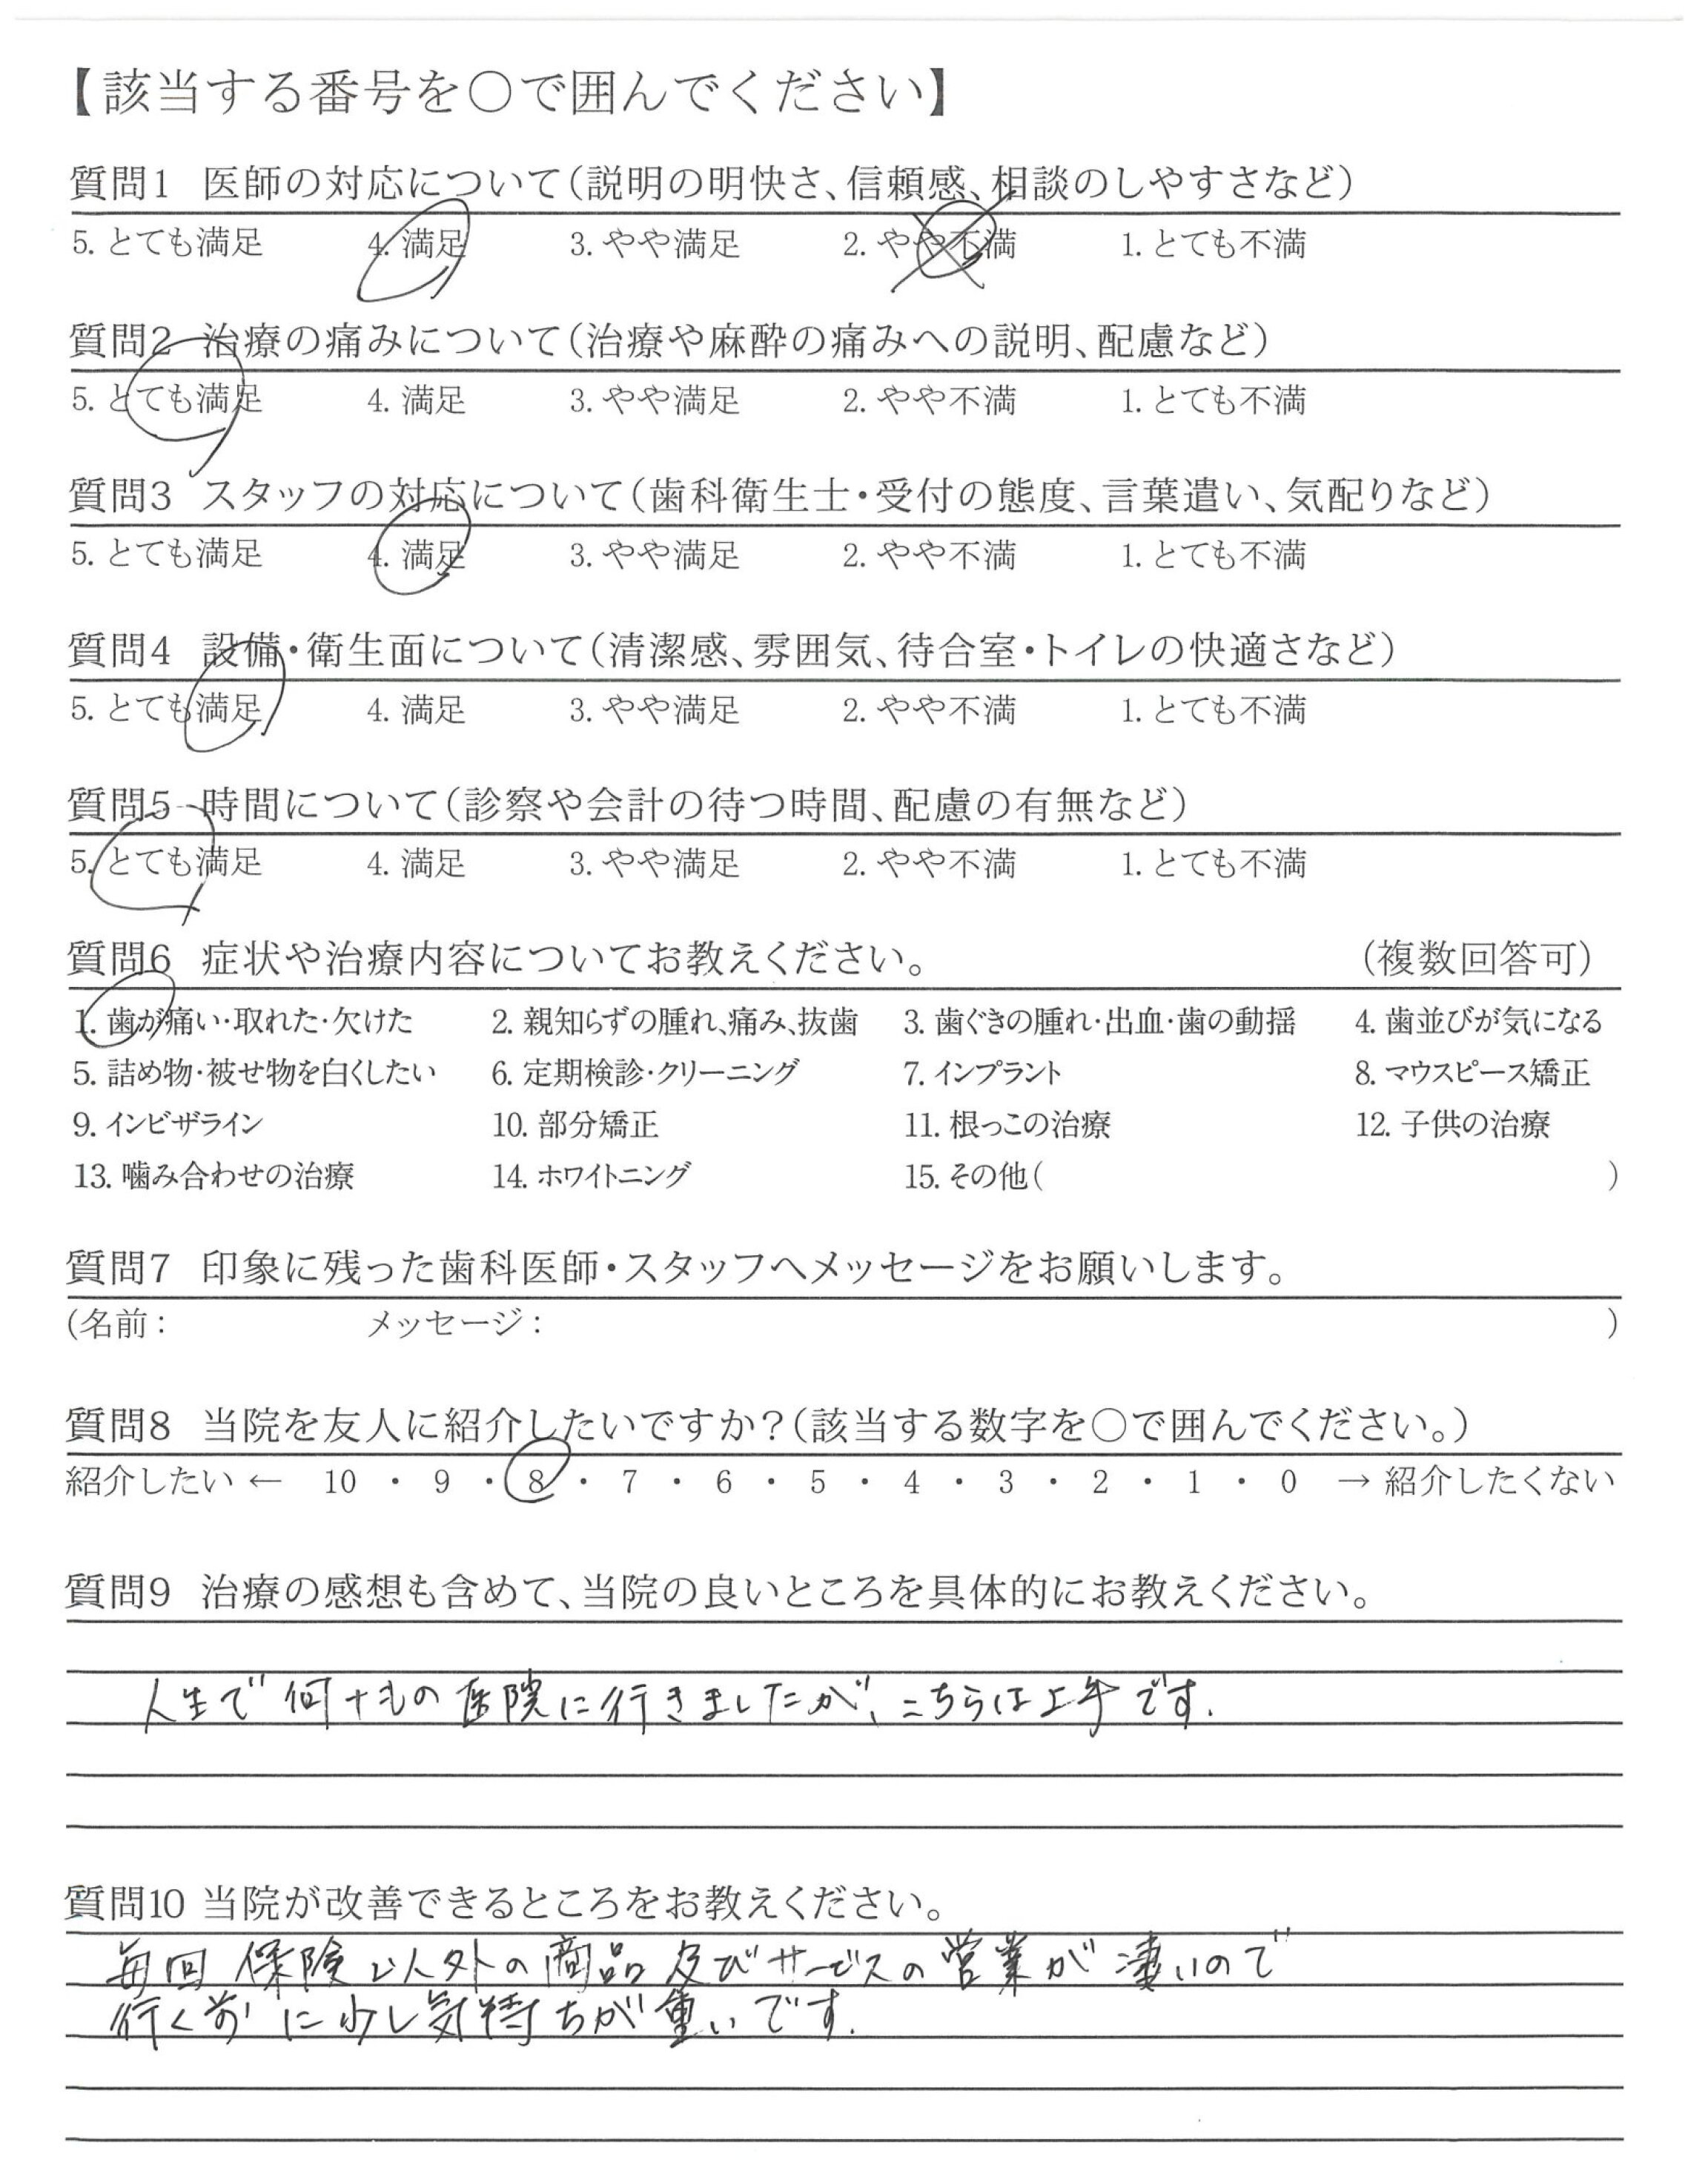 【該当する番号を○で囲んでください】
質問1 医師の対応について(説明の明快さ、信頼感、相談のしやすさなど)
5. とても満足 4. 満足 3. やや満足 2. やや不満 1. とても不満
質問2 治療の痛みについて(治療や麻酔の痛みへの説明、配慮など)
5. とても満足 4. 満足 3. やや満足 2. やや不満 1. とても不満
質問3 スタッフの対応について(歯科衛生士・受付の態度、言葉遣い、気配りなど)
5. とても満足 4. 満足 3. やや満足 2. やや不満 1. とても不満
質問4 設備・衛生面について(清潔感、雰囲気、待合室・トイレの快適さなど)
5. とても満足 4. 満足 3. やや満足 2. やや不満 1. とても不満
質問5 時間について(診察や会計の待つ時間、配慮の有無など)
5. とても満足 4. 満足 3. やや満足 2. やや不満 1. とても不満
質問6 症状や治療内容についてお教えください。 (複数回答可)
1. 歯が痛い・取れた・欠けた 2. 親知らずの腫れ、痛み、抜歯 3. 歯ぐきの腫れ・出血・歯の動揺 4. 歯並びが気になる
5. 詰め物・被せ物を白くしたい 6. 定期検診・クリーニング 7. インプラント 8. マウスピース矯正
9. インビザライン 10. 部分矯正 11. 根っこの治療 12. 子供の治療
13. 噛み合わせの治療 14. ホワイトニング 15. その他( )
質問7 印象に残った歯科医師・スタッフへメッセージをお願いします。
(名前: メッセージ: )
質問8 当院を友人に紹介したいですか?(該当する数字を○で囲んでください。)
紹介したい ← 10 ・ 9 ・ 8 ・ 7 ・ 6 ・ 5 ・ 4 ・ 3 ・ 2 ・ 1 ・ 0 → 紹介したくない
質問9 治療の感想も含めて、当院の良いところを具体的にお教えください。
人生で何十もの医院に行きましたが、こちらは上手です.
質問10 当院が改善できるところをお教えください。
毎回 保険以外の商品及びサービスの営業が凄いので
行く前に少し気持ちが重いです.